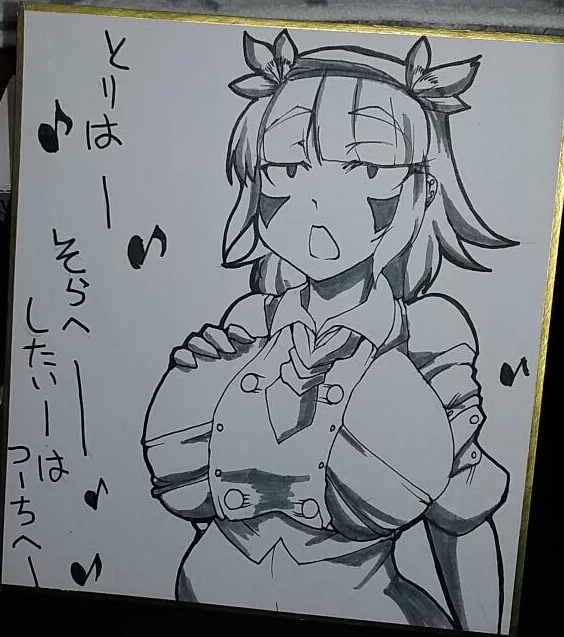 とりはー
そらへー
したいーは
つーちへー